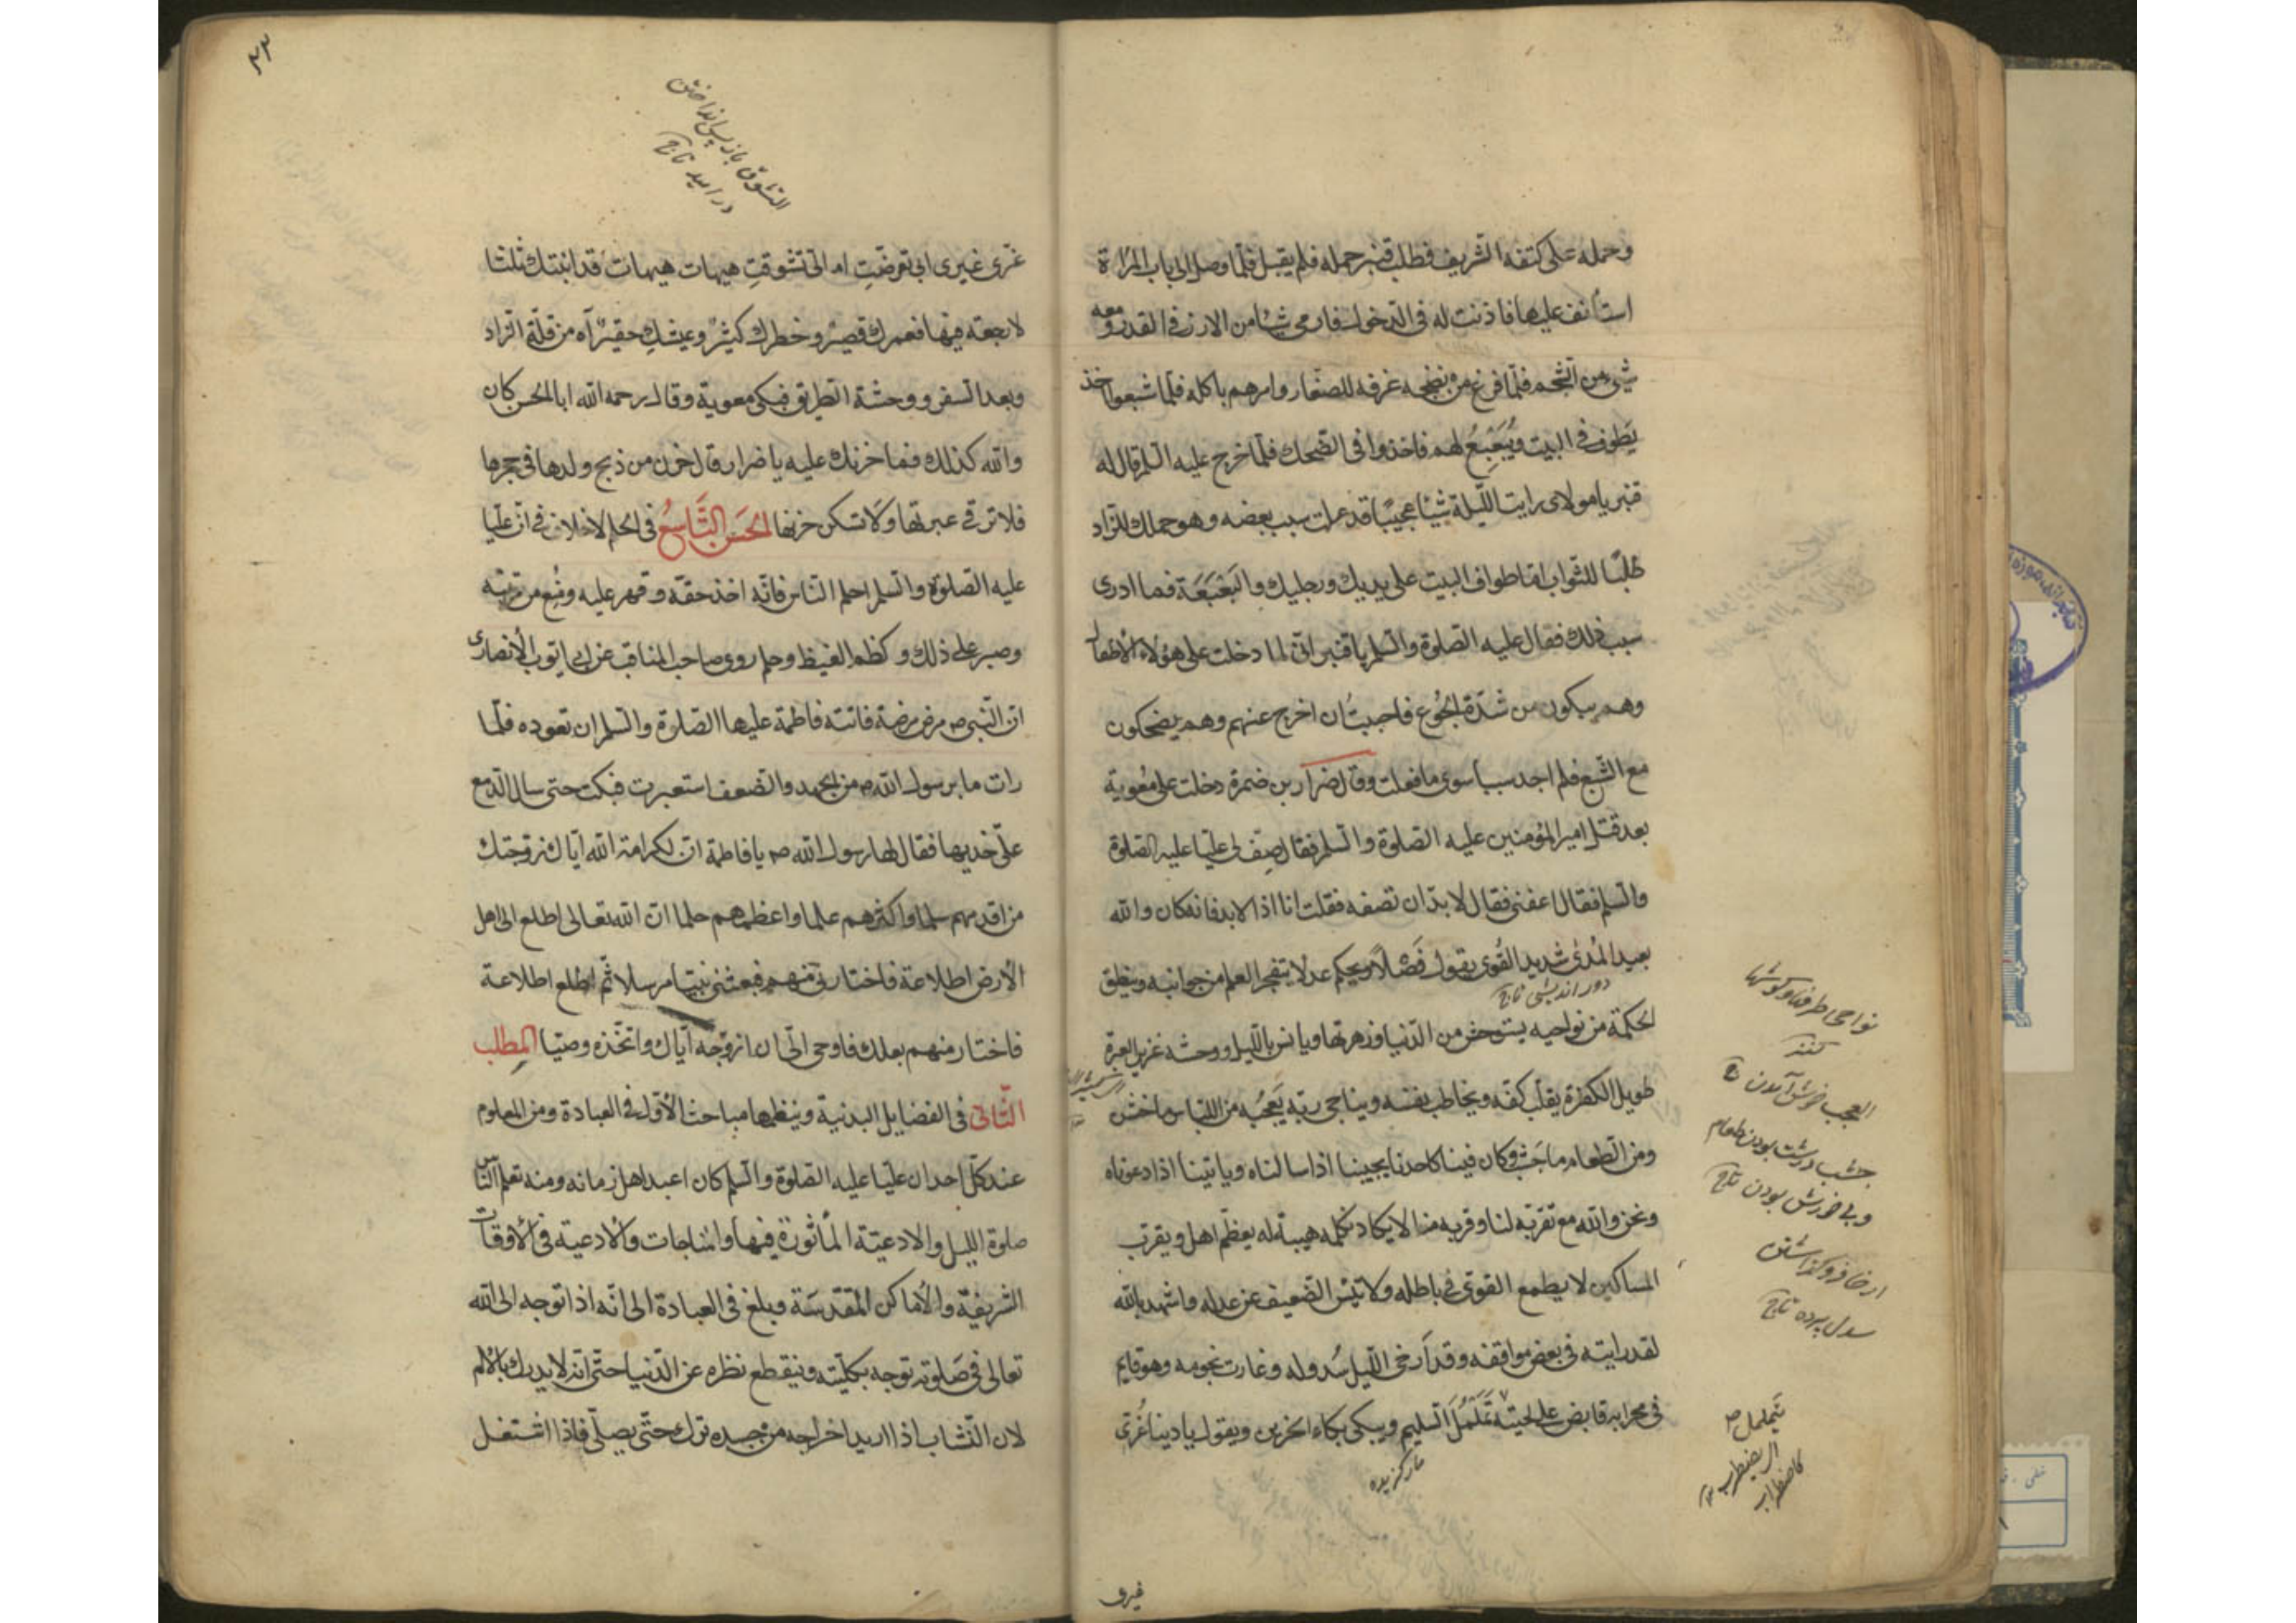 وحمله على كتفه الشريف فطلب قنبر حمله فلم يقبل فلما وصل الى باب المرأة
استأنف عليها فاذنت له فى الدخول فارمى شيئا من الارز فى القدر ومعه
شيئ من الشحم فلما فرغ من نضجه غرفه للصغار وامرهم باكله فلما شبعوا اخذ
يَطوف فى البيت ويُبَعْبِعُ لهم فاخذوا فى الضحك فلما خرج عليه السلم قال له
قنبر يا مولاى رايت الليلة شيئا عجيبًا قد علمت سبب بعضه وهو حملك للزاد
طلبًا للثواب اما طوافك البيت على يديك ورجليك والبَعْبَعَة فما ادرى
سبب ذلك فقال عليه الصلوة والسلم يا قنبر انى لما دخلت على هؤلاء الاطفال
وهم يبكون من شدّة الجُوع فاحببتُ ان اخرج عنهم وهم يضحكون
مع الشبع فلم اجد سببا سوى ما فعلت وقال ضرار بن ضمرة دخلت على معوية
بعد قتل امير المؤمنين عليه الصلوة والسلم فقال صِف لى عليّا عليه الصلوة
والسلم فقال اعفنى فقال لا بدّ ان تصفه فقلت انا اذا لا بد فانه كان والله
بعيد المُدىٰ شديد القُوى يقول فَصْلاً ويحكم عدلا يتفجر العلم من جوانبه وينطق
دور اندیشی تاج
الحكمة من نواحيه يستوحش من الدّنيا وزهرتها ويانس بالليل ووحشته غزير العبرة
طويل الكفرة يقلّب كفّه ويخاطب نفسه ويناجى ربّه يَعْجُبُه من اللباس ما خشن
ومن الطعام ما جَشب وكان فينا كاحدنا يجيبنا اذا سالناه وياتينا اذا دعوناه
ونحن والله مع تقربّه لنا وقربه منا لا يكاد نكلمه هيبة له يعظّم اهل ويقرّب
المساكين لا يطمع القوىّ فى باطله ولا تيئس الضعيف عن عدله واشهد بالله
لقد رايته فى بعض مواقفه وقد اَرخى الليل سُدوله وغارت نجومه وهو قايم
فى محرابه قابض على لحيته تَمَلْمُلَ السليم ويبكى بكاء الحزين ويقول يا دينا غُرّى
مار گزیده
نواحى طرفها وگوشها
كنند
العجب خوش آمدن
جشب درشت بودن طعام
وبی خورش بودن تاج
ارخا فرو گذاشتن
سدل پرده تاج
يتململ
اى يضطرب
كاضطراب
غيرى
٣٣
التشوّق باز پس انداختن
در امید تاج
غرّى غيرى ابى تعرضتِ ام الىّ تشوقتِ هيهات هيهات قد ابنتك ثلثا
لا رجعته فيها فعمرك قصيرٌ وخطرك كثيرٌ وعيشكِ حقيرٌ آه من قلّة الزاد
وبعد السفر ووحشة الطريق فبكى معوية وقال رحمه الله ابا الحسن كان
والله كذلك فما حزنك عليه يا ضرار قال حزن من ذبح ولدها فى حجرها
فلا ترقى عبرتها ولَا تسكن حزنها الحسَن التَّاسِعُ فى الحلم لا خلاف فى انّ عليّا
عليه الصلوة والسلم احلم الناس فانّه اخذ حقّه وقهر عليه ومُنِع من مرتبته
وصبر على ذلك وكظم الغيظ وحلم روى صاحب المناقب عن ابى ايوب الأنصارى
ان النّبى ص مرض مرضة فاتته فاطمة عليها الصلوة والسلم ان تعوده فلمّا
رات ما برسول الله ص من الجهد والضعف استعبرت فبكت حتى سال الدّمع
علىّ خديها فقال لها رسول الله ص يا فاطمة انّ لكرامة الله ايّاك زوجتك
من اقدمهم سلما واكثرهم علما واعظمهم حلما انّ الله تعالى اطلع الى اهل
الأرض اطلاعة فاختارنى منهم فبعثنى نبيّا مرسلا ثمّ اطلع اطلاعة
فاختار منهم بعلك فاوحى الىّ ان ازوّجه ايّاك واتّخذه وصيّا المطلب
الثّانى فى الفضايل البدنية وينظمها مباحث الأوّل فى العبادة ومن المعلوم
عند كلّ احد ان عليّا عليه الصلوة والسلم كان اعبد اهل زمانه ومنه تعلم النّاس
صلوة الليل والادعيّة المأثورة فيها والمناجات والأدعية فى الأوقات
الشريفة والأماكن المقدّسَة وبلغ فى العبادة الى انّه اذا توجه الى الله
تعالى فى صَلوته توجه بكلّيته وينقطع نظره عن الدّنيا حتّى انّه لا يدرك بالألم
لان النّشاب اذا اريد اخراجه من جسده ترك حتّى يصلّى فاذا اشتغل